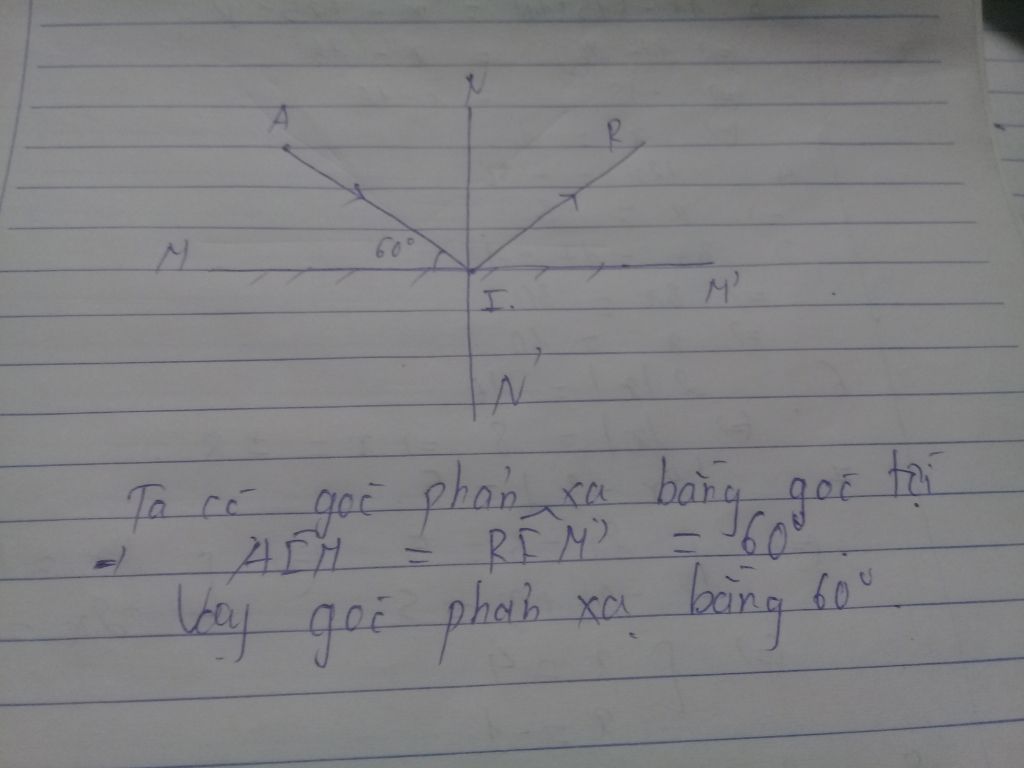 N
A
R
60°
M
I.
M'
N'
Ta có góc phản xạ bằng góc tới
⇒ AIM = RIM' = 60°.
Vậy góc phản xạ bằng 60°.